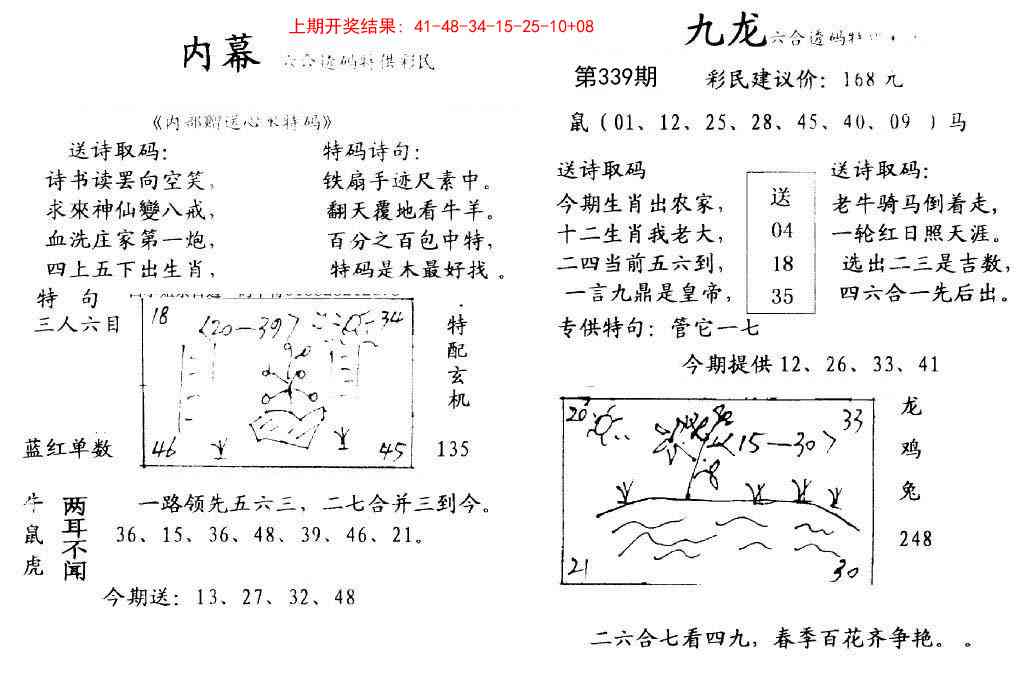 上期开奖结果：41-48-34-15-25-10+08
内幕 六合透码特供彩民
《内部赠送心水特码》
送诗取码：
诗书读罢向空笑，
求來神仙變八戒，
血洗庄家第一炮，
四上五下出生肖，
特码诗句：
铁扇手迹尺素中。
翻天覆地看牛羊。
百分之百包中特，
特码是木最好找。
特 句
三人六目
蓝红单数
18
〈20—39〉
34
46
45
特
配
玄
机
135
牛
鼠
虎
两耳不闻
一路领先五六三，二七合并三到今。
36、15、36、48、39、46、21。
今期送：13、27、32、48
九龙 六合透码特
第339期
彩民建议价：168元
鼠（01、12、25、28、45、40、09 ）马
送诗取码
今期生肖出农家，
十二生肖我老大，
二四当前五六到，
一言九鼎是皇帝，
送
04
18
35
送诗取码：
老牛骑马倒着走，
一轮红日照天涯。
选出二三是吉数，
四六合一先后出。
专供特句：管它一七
今期提供12、26、33、41
20
33
〈15—30〉
21
30
龙
鸡
兔
248
二六合七看四九，春季百花齐争艳。。